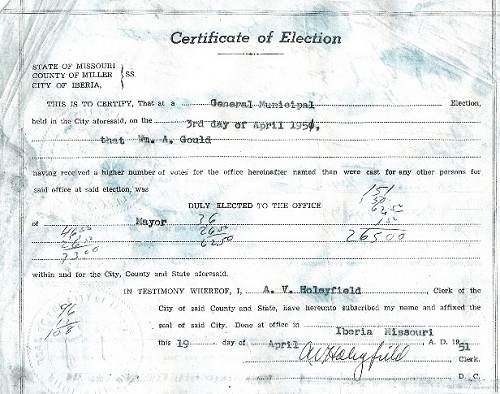 Certificate of Election
STATE OF MISSOURI
COUNTY OF MILLER } SS.
CITY OF IBERIA,
THIS IS TO CERTIFY, That at a General Municipal Election,
held in the City aforesaid, on the 3rd day of April 1951,
that Wm. A. Gould
having received a higher number of votes for the office hereinafter named than were cast for any other persons for
said office at said election, was
DULY ELECTED TO THE OFFICE
of Mayor
36
26 50
62 50
46 50
26 50
73 00
151
50
62 50
1 50
265 00
within and for the City, County and State aforesaid.
IN TESTIMONY WHEREOF, I, A. V. Holeyfield Clerk of the
City of said County and State, have hereunto subscribed my name and affixed the
seal of said City. Done at office in Iberia Missouri
this 19 day of April A. D. 1951
96
12
108
AV Holeyfield Clerk.
D. C.